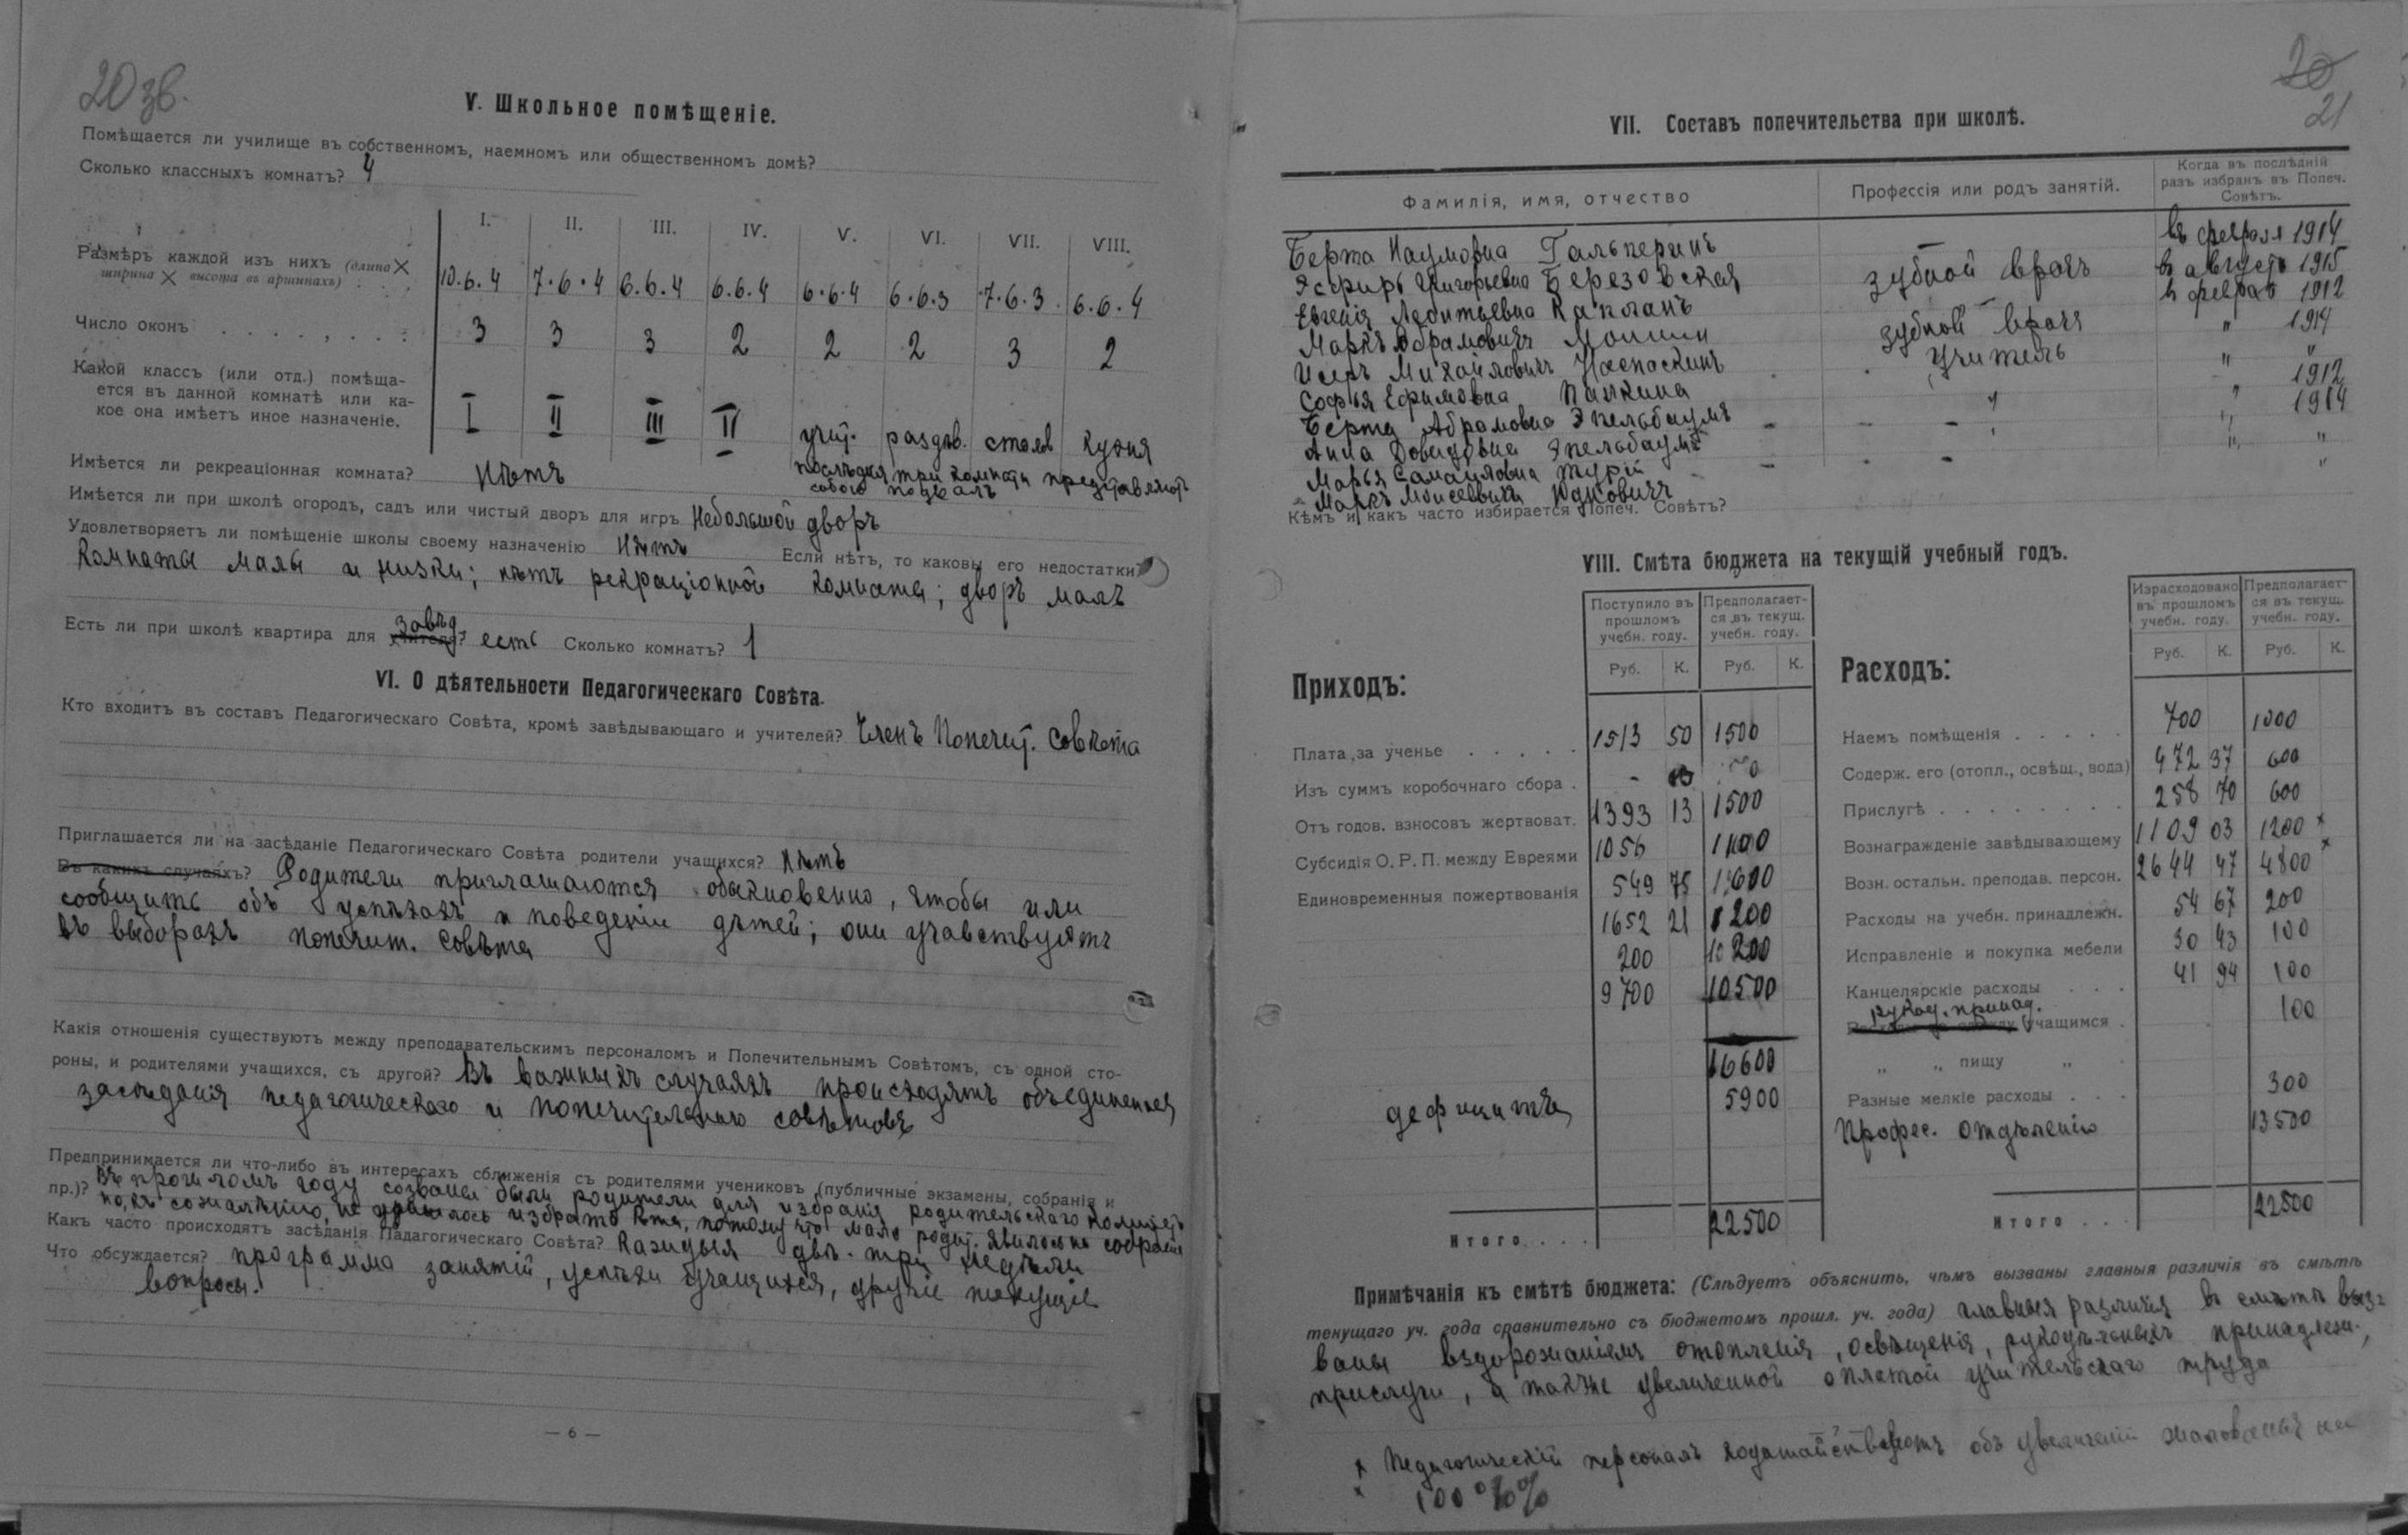 20 зв.
V. Школьное помѣщеніе.
Помѣщается ли училище въ собственномъ, наемномъ или общественномъ домѣ?
Сколько классныхъ комнатъ? 4
I. II. III. IV. V. VI. VII. VIII.
Размѣръ каждой изъ нихъ (длина ×
ширина × высота въ аршинахъ) 10.6.4 7.6.4 6.6.4 6.6.4 6.6.4 6.6.3 7.6.3 6.6.4
Число оконъ 3 3 3 2 2 2 3 2
Какой классъ (или отд.) помѣща-
ется въ данной комнатѣ или ка-
кое она имѣетъ иное назначеніе. I II III IV учит. раздѣв. столов кухня
Имѣется ли рекреаціонная комната? Нѣтъ послѣднія три комнаты представляютъ
собою подвалъ
Имѣется ли при школѣ огородъ, садъ или чистый дворъ для игръ Небольшой дворъ
Удовлетворяетъ ли помѣщеніе школы своему назначенію Нѣтъ Если нѣтъ, то каковы его недостатки?
Комнаты малы и низки; нѣтъ рекраціонной комнаты; дворъ малъ
Есть ли при школѣ квартира для учителя? завѣд. есть Сколько комнатъ? 1
VI. О дѣятельности Педагогическаго Совѣта.
Кто входитъ въ составъ Педагогическаго Совѣта, кромѣ завѣдывающаго и учителей? Членъ Попечит. Совѣта
Приглашается ли на засѣданіе Педагогическаго Совѣта родители учащихся? Нѣтъ
Въ какихъ случаяхъ? Родители приглашаются обыкновенно, чтобы или
сообщить объ успѣхахъ и поведеніи дѣтей; они учавствуютъ
въ выборахъ попечит. Совѣта
Какія отношенія существуютъ между преподавательскимъ персоналомъ и Попечительнымъ Совѣтомъ, съ одной сто-
роны, и родителями учащихся, съ другой? Въ важныхъ случаяхъ происходятъ объединенныя
засѣданія педагогическаго и попечительнаго совѣтовъ
Предпринимается ли что-либо въ интересахъ сближенія съ родителями учениковъ (публичные экзамены, собранія и
пр.)? Въ прошломъ году созваны были родители для избранія родительскаго комитета
но, къ сожалѣнію, не удалось избрать потому что мало родит. явилось на собраніе
Какъ часто происходятъ засѣданія Падагогическаго Совѣта? Каждыя двѣ-три недѣли
Что обсуждается? программа занятій, успѣхи учащихся, другіе текущіе
вопросы.
— 6 —
20
21
VII. Составъ попечительства при школѣ.
Фамилія, имя, отчество Профессія или родъ занятій. Когда въ послѣдній
разъ избранъ въ Попеч.
Совѣтъ.
Берта Наумовна Гальперинъ – въ февралѣ 1914
Эсфирь Григорьевна Березовская зубной врачъ въ августѣ 1915
Евгенія Леонтьевна Капланъ – въ февралѣ 1912
Маркъ Абрамовичъ зубной врачъ " 1914
Михайловичъ учитель " "
Софья Ефимовна " 1912
Берта Абрамовна Эпельбаумъ - - " 1914
Анна Давидовна Эпельбаумъ " "
Марья Самаиловна - - "
Маркъ Моисеевичъ Юдковичъ
Кѣмъ и какъ часто избирается Попеч. Совѣтъ?
VIII. Смѣта бюджета на текущій учебный годъ.
Приходъ: Поступило въ прошломъ учебн. году. Предполагает-ся въ текущ. учебн. году.
Руб. К. Руб. К.
Плата за ученье 1513 50 1500
Изъ суммъ коробочнаго сбора -
Отъ годов. взносовъ жертвоват. 1393 13 1500
Субсидія О. Р. П. между Евреями 1056
Единовременныя пожертвованія 549 75
1652 21
200
9700 10500
16600
дефицитъ 5900
Итого 22500
Расходъ: Израсходовано въ прошломъ учебн. году. Предполагает-ся въ текущ. учебн. году.
Руб. К. Руб. К.
Наемъ помѣщенія 700 1000
Содерж. его (отопл., освѣщ., вода) 472 37 600
Прислугѣ 258 70 600
Вознагражденіе завѣдывающему 1109 03 1200 ×
Возн. остальн. преподав. персон. 2644 47 4800 ×
Расходы на учебн. принадлежн. 54 67 200
Исправленіе и покупка мебели 30 43 100
Канцелярскіе расходы 41 94 100
рукод. принад.
Расходы на одежду учащимся 100
„ „ пищу „
Разные мелкіе расходы 300
Профес. отдѣленію 13500
Итого 22500
Примѣчанія къ смѣтѣ бюджета: (Слѣдуетъ объяснить, чѣмъ вызваны главныя различія въ смѣтѣ
текущаго уч. года сравнительно съ бюджетомъ прошл. уч. года) главныя различія въ смѣтѣ выз-
ваны вздорожаніемъ отопленія, освѣщенія, рукодѣльныхъ принадлежн.,
прислуги, а также увеличенной оплатой учительскаго труда
× Педагогическій персоналъ ходатайствуетъ объ увеличеніи жалованья на
× 100 %